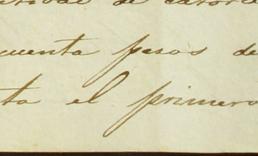 de
cuenta pesos de
ta el primero